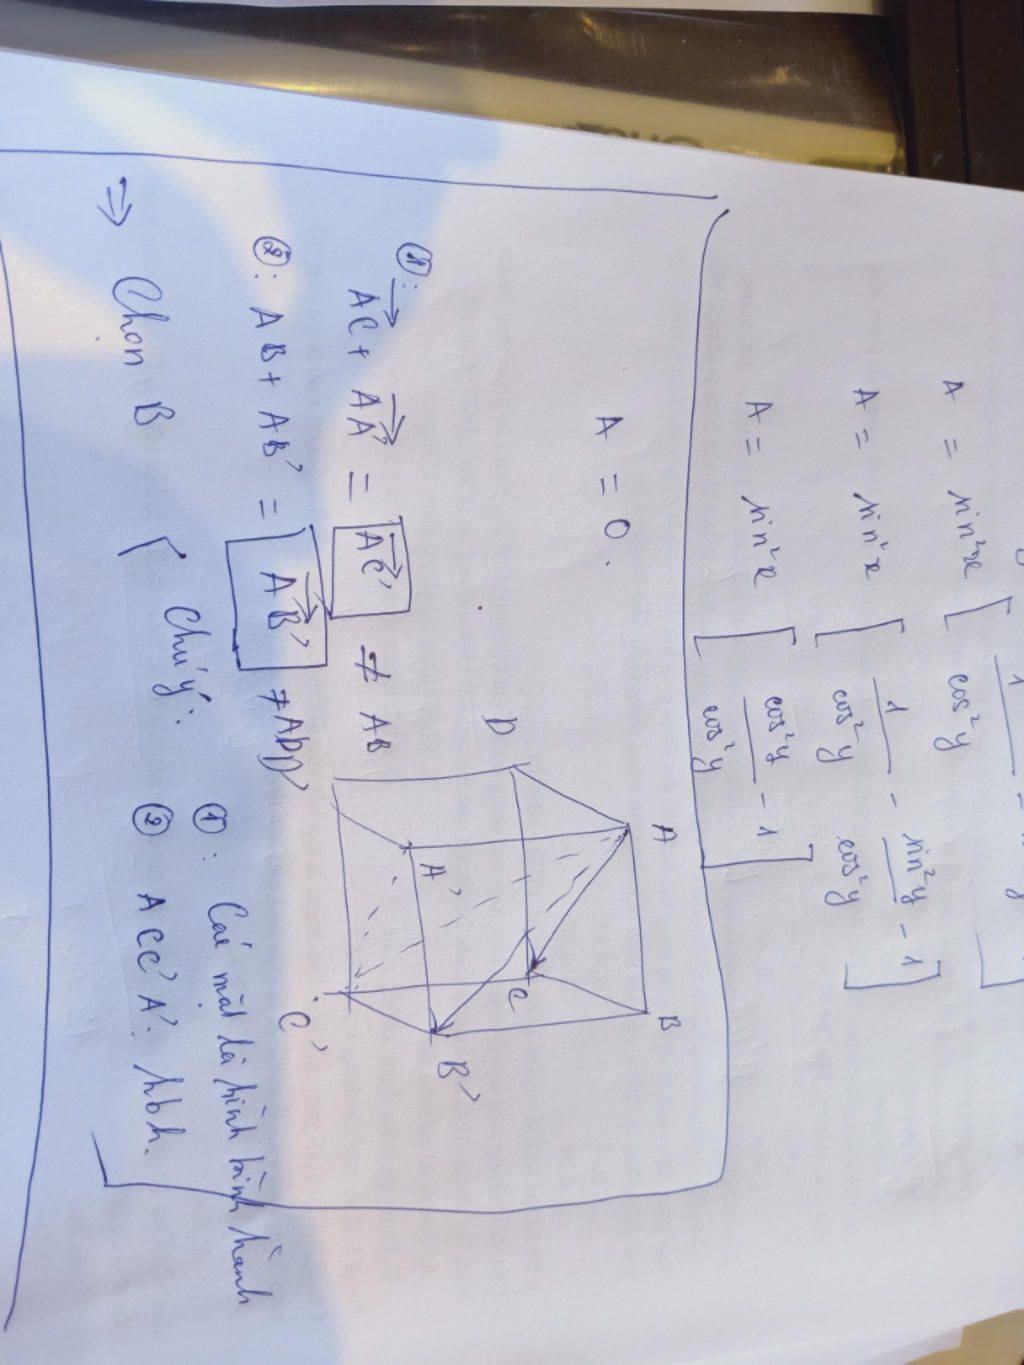 A = sin²x [ 1/cos²y
A = sin²x [ 1/cos²y - sin²y/cos²y - 1 ]
A = sin²x [ cos²y/cos²y - 1 ]
A = 0.
①: AC + AA' = AC' ≠ AB
②: AB + AB' = AB' ≠ ADD'
⇒ Chọn B
Chú ý: ①: Các mặt là hình bình hành
② ACC'A': hbh.
A
B
C
D
A'
B'
C'